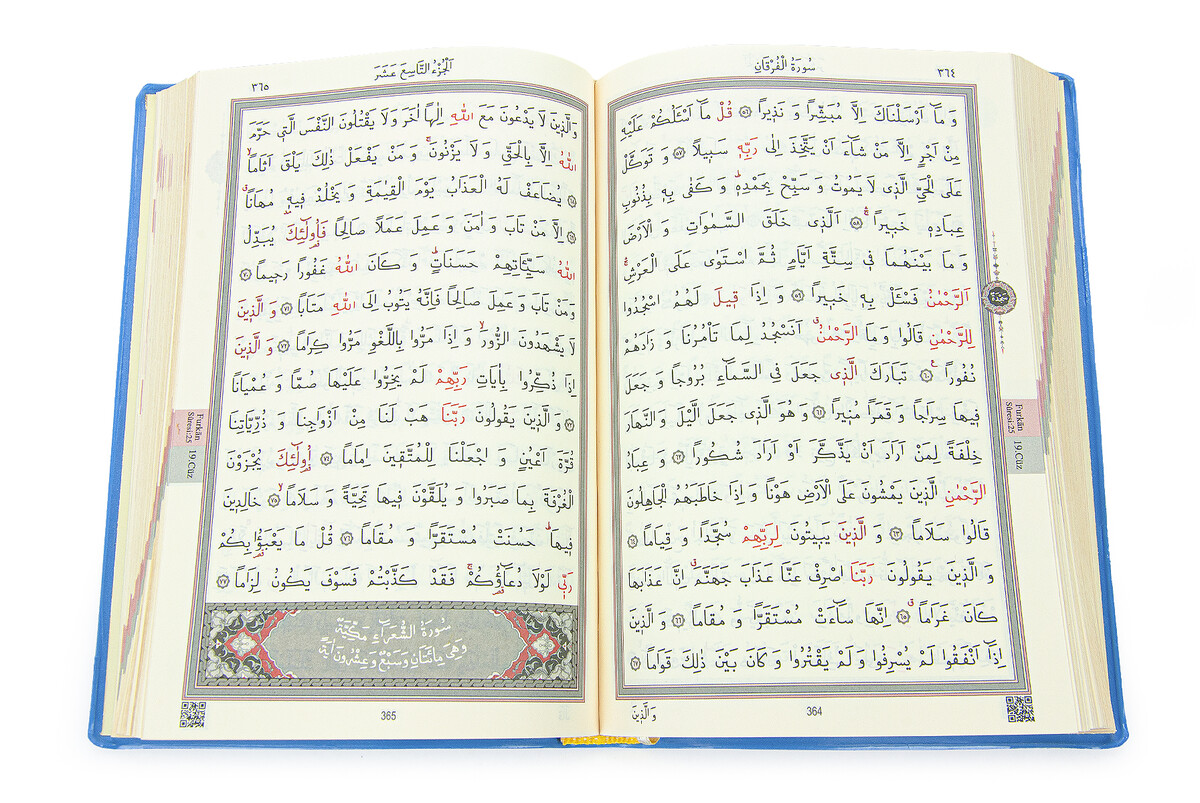 ٣٦٤
سُورَةُ الْفُرْقَانِ
وَ مَٓا اَرْسَلْنَاكَ اِلَّا مُبَشِّرًا وَ نَذ۪يرًا ﴿٥٦﴾ قُلْ مَٓا اَسْـَٔلُكُمْ عَلَيْهِ
مِنْ اَجْرٍ اِلَّا مَنْ شَٓاءَ اَنْ يَتَّخِذَ اِلٰى رَبِّه۪ سَب۪يلًا ﴿٥٧﴾ وَ تَوَكَّلْ
عَلَى الْحَيِّ الَّذ۪ي لَا يَمُوتُ وَ سَبِّحْ بِحَمْدِه۪ۜ وَ كَفٰى بِه۪ بِذُنُوبِ
عِبَادِه۪ خَب۪يرًاۚۛ ﴿٥٨﴾ اَلَّذ۪ي خَلَقَ السَّمٰوَاتِ وَ الْاَرْضَ
وَ مَا بَيْنَهُمَا ف۪ي سِتَّةِ اَيَّامٍ ثُمَّ اسْتَوٰى عَلَى الْعَرْشِۚۛ
اَلرَّحْمٰنُ فَسْـَٔلْ بِه۪ خَب۪يرًا ﴿٥٩﴾ وَ اِذَا ق۪يلَ لَهُمُ اسْجُدُوا
لِلرَّحْمٰنِ قَالُوا وَ مَا الرَّحْمٰنُۗ اَنَسْجُدُ لِمَا تَأْمُرُنَا وَ زَادَهُمْ
نُفُورًا۟ ﴿٦٠﴾ تَبَارَكَ الَّذ۪ي جَعَلَ فِي السَّمَٓاءِ بُرُوجًا وَ جَعَلَ
ف۪يهَا سِرَاجًا وَ قَمَرًا مُن۪يرًا ﴿٦١﴾ وَ هُوَ الَّذ۪ي جَعَلَ الَّيْلَ وَ النَّهَارَ
خِلْفَةً لِمَنْ اَرَادَ اَنْ يَذَّكَّرَ اَوْ اَرَادَ شُكُورًا ﴿٦٢﴾ وَ عِبَادُ
الرَّحْمٰنِ الَّذ۪ينَ يَمْشُونَ عَلَى الْاَرْضِ هَوْنًا وَ اِذَا خَاطَبَهُمُ الْجَاهِلُونَ
قَالُوا سَلَامًا ﴿٦٣﴾ وَ الَّذ۪ينَ يَب۪يتُونَ لِرَبِّهِمْ سُجَّدًا وَ قِيَامًا ﴿٦٤﴾
وَ الَّذ۪ينَ يَقُولُونَ رَبَّنَا اصْرِفْ عَنَّا عَذَابَ جَهَنَّمَۗ اِنَّ عَذَابَهَا
كَانَ غَرَامًاۗ ﴿٦٥﴾ اِنَّهَا سَٓاءَتْ مُسْتَقَرًّا وَ مُقَامًا ﴿٦٦﴾ وَ الَّذ۪ينَ
اِذَٓا اَنْفَقُوا لَمْ يُسْرِفُوا وَ لَمْ يَقْتُرُوا وَ كَانَ بَيْنَ ذٰلِكَ قَوَامًا ﴿٦٧﴾
سجدة
Furkân
Sûresi:25
19.Cüz
364
وَالَّذ۪ينَ
اَلْجُزْءُ التَّاسِعَ عَشَرَ
٣٦٥
وَالَّذ۪ينَ لَا يَدْعُونَ مَعَ اللّٰهِ اِلٰهًا اٰخَرَ وَ لَا يَقْتُلُونَ النَّفْسَ الَّت۪ي حَرَّمَ
اللّٰهُ اِلَّا بِالْحَقِّ وَ لَا يَزْنُونَۚ وَ مَنْ يَفْعَلْ ذٰلِكَ يَلْقَ اَثَامًاۙ
﴿٦٨﴾ يُضَاعَفْ لَهُ الْعَذَابُ يَوْمَ الْقِيٰمَةِ وَ يَخْلُدْ ف۪يه۪ مُهَانًاۗ
﴿٦٩﴾ اِلَّا مَنْ تَابَ وَ اٰمَنَ وَ عَمِلَ عَمَلًا صَالِحًا فَاُو۬لٰٓئِكَ يُبَدِّلُ
اللّٰهُ سَيِّـَٔاتِهِمْ حَسَنَاتٍۜ وَ كَانَ اللّٰهُ غَفُورًا رَح۪يمًا ﴿٧٠﴾
وَمَنْ تَابَ وَ عَمِلَ صَالِحًا فَاِنَّهُ يَتُوبُ اِلَى اللّٰهِ مَتَابًا ﴿٧١﴾ وَ الَّذ۪ينَ
لَا يَشْهَدُونَ الزُّورَۙ وَ اِذَا مَرُّوا بِاللَّغْوِ مَرُّوا كِرَامًا ﴿٧٢﴾ وَ الَّذ۪ينَ
اِذَا ذُكِّرُوا بِاٰيَاتِ رَبِّهِمْ لَمْ يَخِرُّوا عَلَيْهَا صُمًّا وَ عُمْيَانًا
﴿٧٣﴾ وَ الَّذ۪ينَ يَقُولُونَ رَبَّنَا هَبْ لَنَا مِنْ اَزْوَاجِنَا وَ ذُرِّيَّاتِنَا
قُرَّةَ اَعْيُنٍ وَ اجْعَلْنَا لِلْمُتَّق۪ينَ اِمَامًا ﴿٧٤﴾ اُو۬لٰٓئِكَ يُجْزَوْنَ
الْغُرْفَةَ بِمَا صَبَرُوا وَ يُلَقَّوْنَ ف۪يهَا تَحِيَّةً وَ سَلَامًاۙ ﴿٧٥﴾ خَالِد۪ينَ
ف۪يهَاۜ حَسُنَتْ مُسْتَقَرًّا وَ مُقَامًا ﴿٧٦﴾ قُلْ مَا يَعْبَؤُ۬ا بِكُمْ
رَبّ۪ي لَوْلَا دُعَٓاؤُ۬كُمْۚ فَقَدْ كَذَّبْتُمْ فَسَوْفَ يَكُونُ لِزَامًا ﴿٧٧﴾
سُورَةُ الشُّعَرَاءِ مَكِّيَّةٌ
وَهِيَ مِائَتَانِ وَسَبْعٌ وَعِشْرُونَ اٰيَةً
Furkân
Sûresi:25
19.Cüz
365